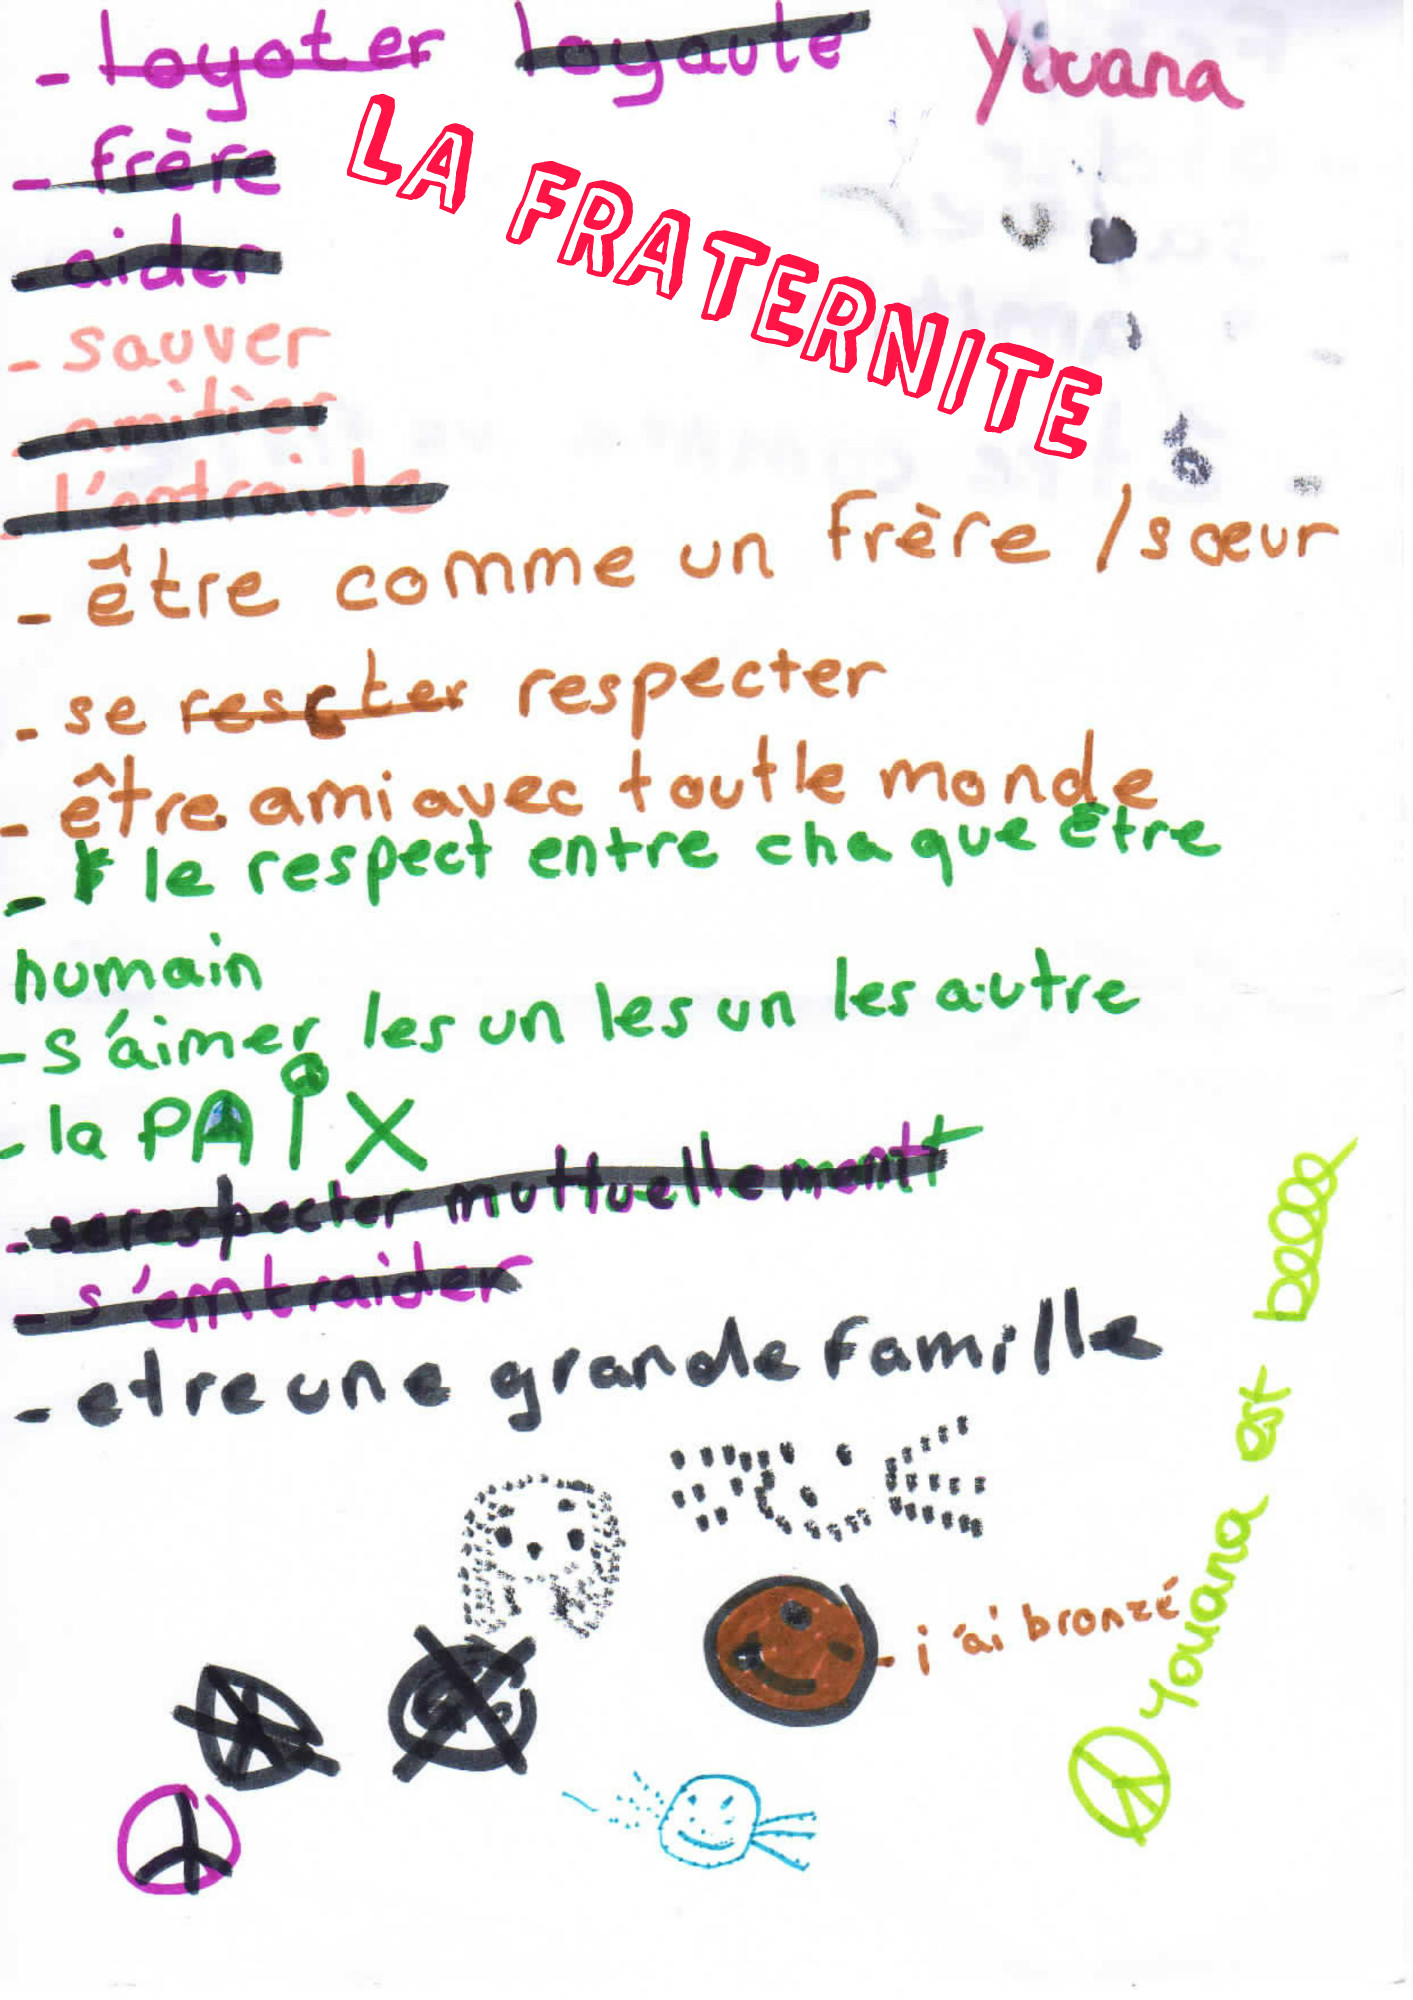 - loyoter loyauté Youana
- frère
LA FRATERNITE
- aider
- sauver
- amitier
- l'entraide
- être comme un frère / sœur
- se rescter respecter
- être ami avec tout le monde
- le respect entre chaque être
humain
- s'aimer les un les un les autre
- la PAiX
- se respecter muttuellement
- s'emtraider
- etre une grande famille
- j'ai bronzé
Youana est belle